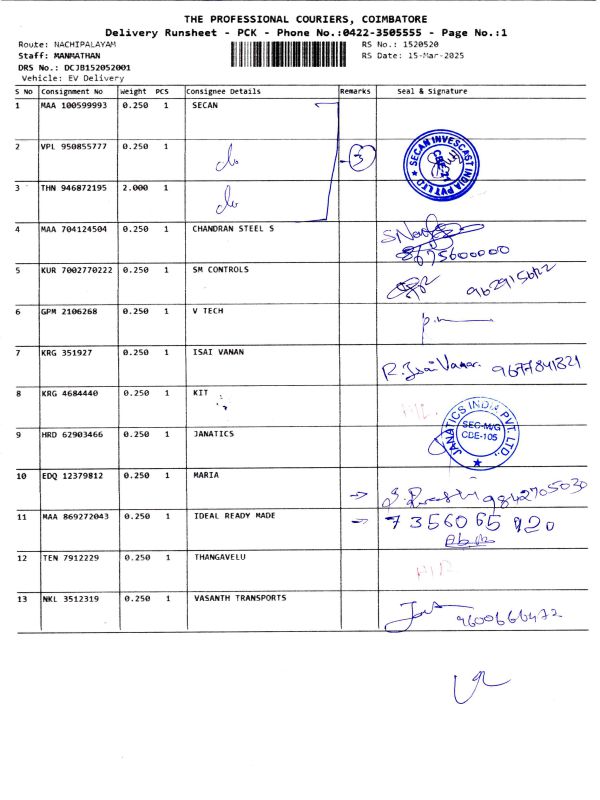 THE PROFESSIONAL COURIERS, COIMBATORE
Delivery Runsheet - PCK - Phone No.:0422-3505555 - Page No.:1
Route: NACHIPALAYAM RS No.: 1520520
Staff: MANMATHAN RS Date: 15-Mar-2025
DRS No.: DCJB152052001
Vehicle: EV Delivery
S No Consignment No Weight PCS Consignee Details Remarks Seal & Signature
1 MAA 100599993 0.250 1 SECAN
2 VPL 950855777 0.250 1 do 3 SECAN INVESCAST INDIA PVT LTD
3 THN 946872195 2.000 1 do
4 MAA 704124504 0.250 1 CHANDRAN STEEL S
5 KUR 7002770222 0.250 1 SM CONTROLS
6 GPM 2106268 0.250 1 V TECH
7 KRG 351927 0.250 1 ISAI VANAN R. Isai Vanan 9677841321
8 KRG 4684440 0.250 1 KIT
9 HRD 62903466 0.250 1 JANATICS JANATICS INDIA PVT. LTD., SEC-M/G CDE-105
10 EDQ 12379812 0.250 1 MARIA 9842705030
11 MAA 869272043 0.250 1 IDEAL READY MADE 7356065920
12 TEN 7912229 0.250 1 THANGAVELU
13 NKL 3512319 0.250 1 VASANTH TRANSPORTS 9600666472